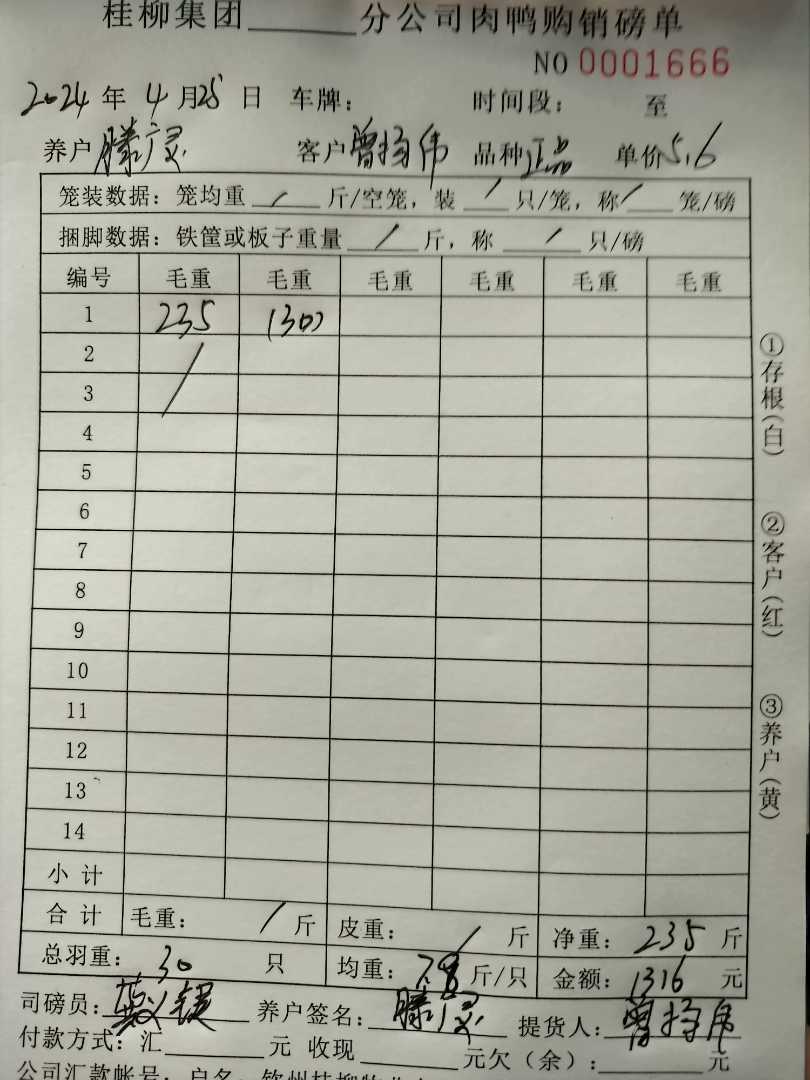 桂柳集团______分公司肉鸭购销磅单
NO 0001666
2024 年 4 月 25 日 车牌： 时间段： 至
养户 滕广灵 客户 曾扬伟 品种 正品 单价 5.6
笼装数据：笼均重 / 斤/空笼，装 / 只/笼，称 / 笼/磅
捆脚数据：铁筐或板子重量 / 斤，称 / 只/磅
编号 毛重 毛重 毛重 毛重 毛重 毛重
1 235 (30)
2 /
3
4
5
6
7
8
9
10
11
12
13
14
小计
合计 毛重： / 斤 皮重： / 斤 净重：235 斤
总羽重：30 只 均重：7.8 斤/只 金额：1316 元
司磅员： 养户签名：滕广灵 提货人：曾扬伟
付款方式：汇______元 收现______元欠（余）：______元
公司汇款帐号：户名：钦州桂柳牧业
①存根(白)
②客户(红)
③养户(黄)